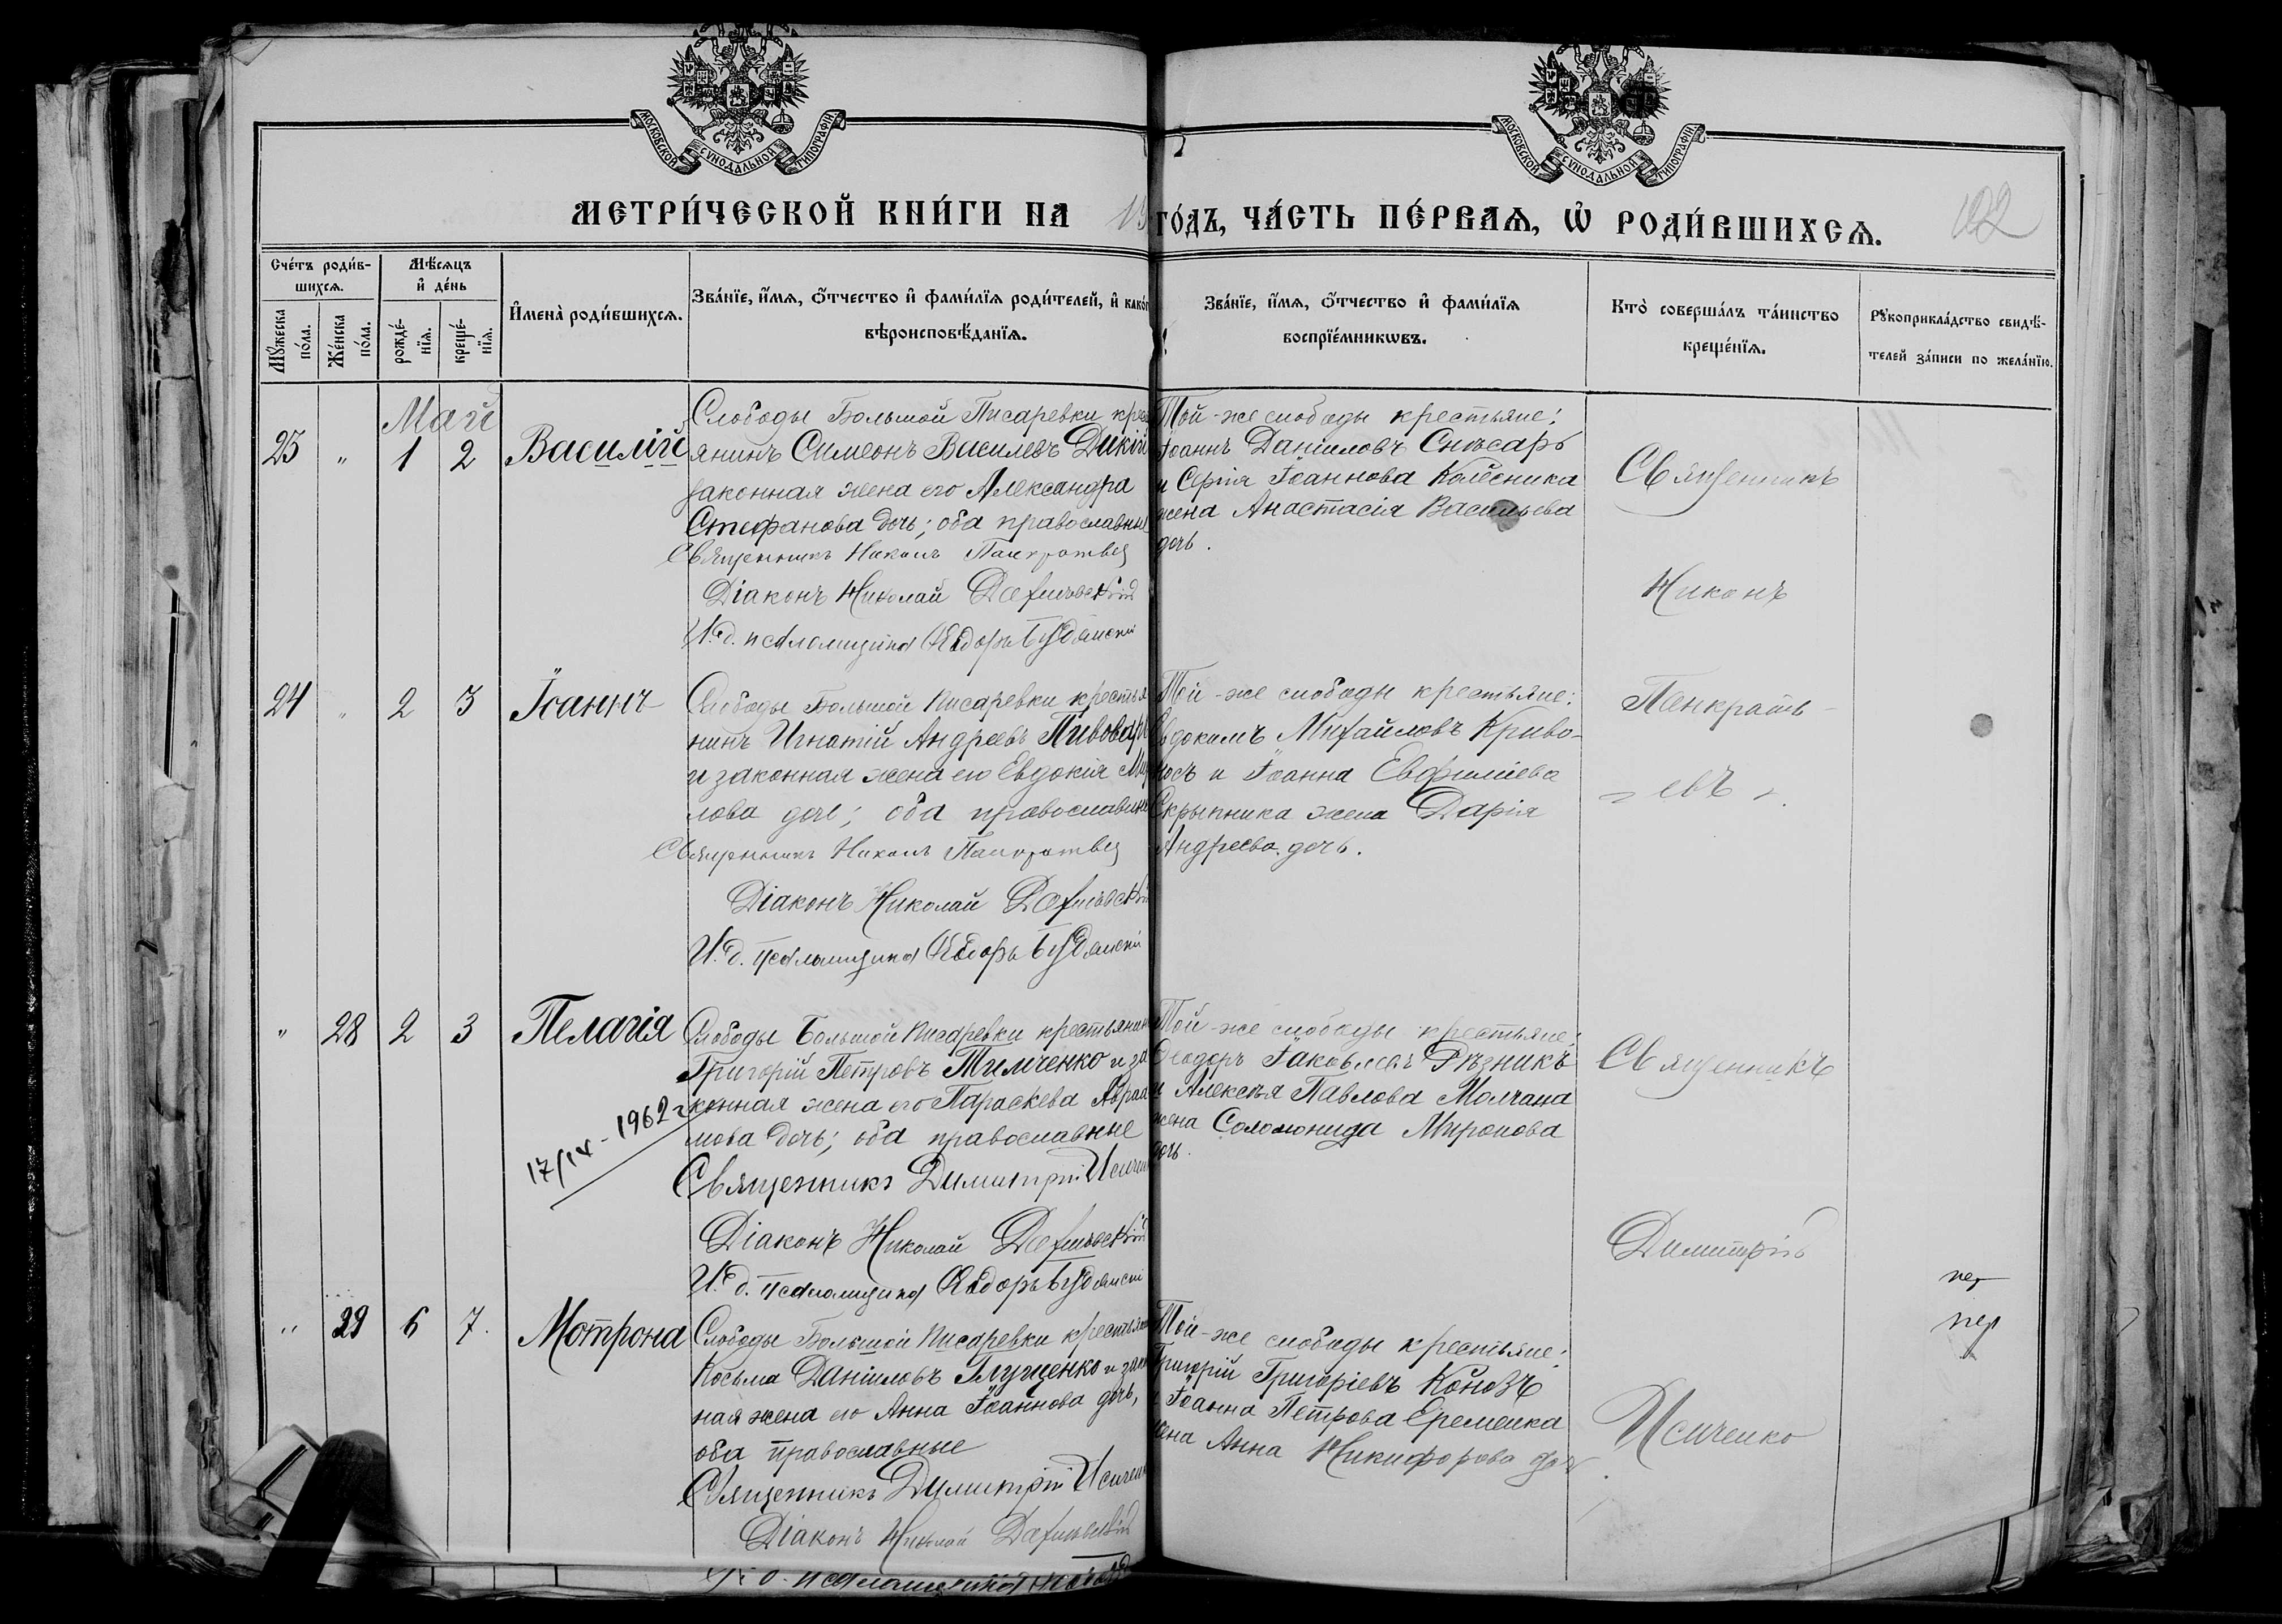 МОСКОВСКОЙ СУНОДАЛЬНОЙ ТИПОГРАФІИ
МОСКОВСКОЙ СУНОДАЛЬНОЙ ТИПОГРАФІИ
МЕТРИ́ЧЕСКОЙ КНИ́ГИ НА 19
ГО́ДЪ, ЧА́СТЬ ПЕ́РВАѦ, Ѽ РОДИ́ВШИХСѦ.
122
Сче́тъ роди́в-
шихсѧ.
Мѣ́сѧцъ
и҆ де́нь
Мꙋ́жеска по́ла.
Же́нска по́ла.
рожде́-
нїѧ.
креще́-
нїѧ.
И҆мена̀ роди́вшихсѧ.
Зва́нїе, и҆́мѧ, ѻ҆́тчество и҆ фами́лїѧ роди́телей, и҆ како́г
вѣроисповѣ́данїѧ.
Зва́нїе, и҆́мѧ, ѻ҆́тчество и҆ фами́лїѧ
воспрїе́мникѡвъ.
Кто̀ соверша́лъ та́инство
креще́нїѧ.
Рꙋкоприкла́дство свидѣ́-
телей за́писи по жела́нїю.
Май
23 " 1 2 Василій
Слободы Большой Писаревки крес
янинъ Симеонъ Василевъ Дикій
законная жена его Александра
Стефанова дочь; оба православны
Священникъ Никонъ Панкратьев
Діаконъ Николай
И. д. псаломщика Ѳедоръ Будянскій
Той-же слободы крестьяне:
Іоаннъ Даниловъ Снѣсарь
и Сергія Іоаннова Колесника
жена Анастасія Васильева
дочь.
Священникъ
Никонъ
Панкрать-
евъ
24 " 2 3 Іоаннъ
Слободы Большой Писаревки крестья
нинъ Игнатій Андреевъ Пивоваръ
и законная жена его Евдокія Ми
лова дочь; оба православны
Священникъ Никонъ Панкратьев
Діаконъ Николай
И. д. псаломщика Ѳедоръ Будянскій
Той-же слободы крестьяне:
Евдокимъ Михайловъ Криво-
носъ и Іоанна Евфиміева
Скрыпника жена Дарія
Андреева дочь.
" 28 2 3 Пелагія
Слободы Большой Писаревки крестьянин
Григорій Петровъ Тимченко и за
конная жена его Параскева Авраа
мова дочь; оба православные
17/IX-1962 г
Священникъ Димитрій Исиченк
Діаконъ Николай
И. д. псаломщика Ѳедоръ Будянскій
Той-же слободы крестьяне:
Ѳеодоръ Іаковлевъ Рѣзникъ
и Алексѣя Павлова Молчана
жена Соломонида Миронова
дочь.
Священникъ
Димитрій
Исиченко
" 29 6 7. Мотрона
Слободы Большой Писаревки крестьян
Косьма Даніиловъ Глущенко и закон
ная жена его Анна Іоаннова дочь,
оба православные
Священникъ Димитрій Исиченк
Діаконъ Николай
И. д. псаломщика
Той-же слободы крестьяне:
Григорій Григоріевъ Коновъ
и Іоанна Петрова Еременка
жена Анна Никифорова дочь.
пер
пер